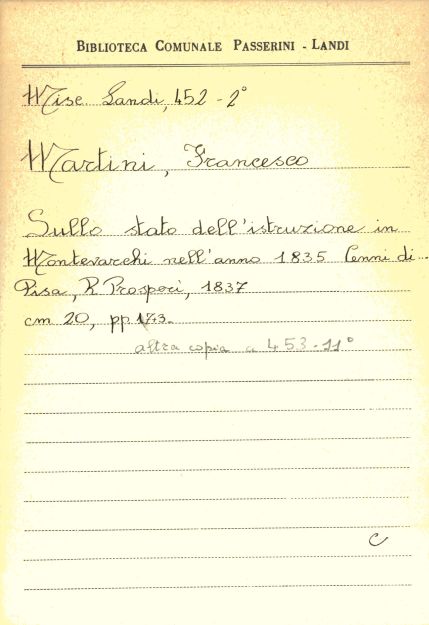 BIBLIOTECA COMUNALE PASSERINI - LANDI
Misc. Landi, 452 - 2°
Martini, Francesco
Sullo stato dell'istruzione in
Montevarchi nell'anno 1835 Cenni di...
Pisa, R. Prosperi, 1837
cm 20, pp.
altra copia a 453-11°
C